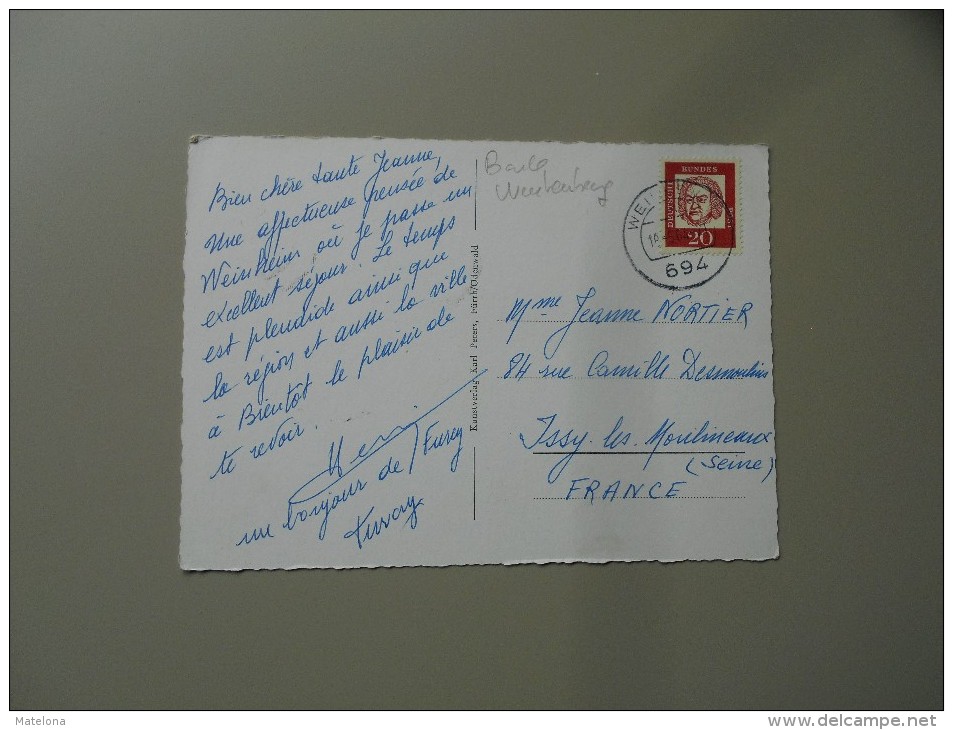 Bien chère tante Jeanne,
Une affectueuse pensée de
Weinheim où je passe un
excellent séjour. Le temps
est plendide ainsi que
la région et aussi la ville
à Bientôt le plaisir de
te revoir.
un bonjour de
Kunstverlag Karl Peters, Fürth/Odenwald
DEUTSCHE
BUNDES
POST
20
WEI
694
Mme Jeanne NORTIER
84 rue Camille Desmoulins
Issy-les-Moulineaux
(Seine)
FRANCE
Matelona
www.delcampe.net